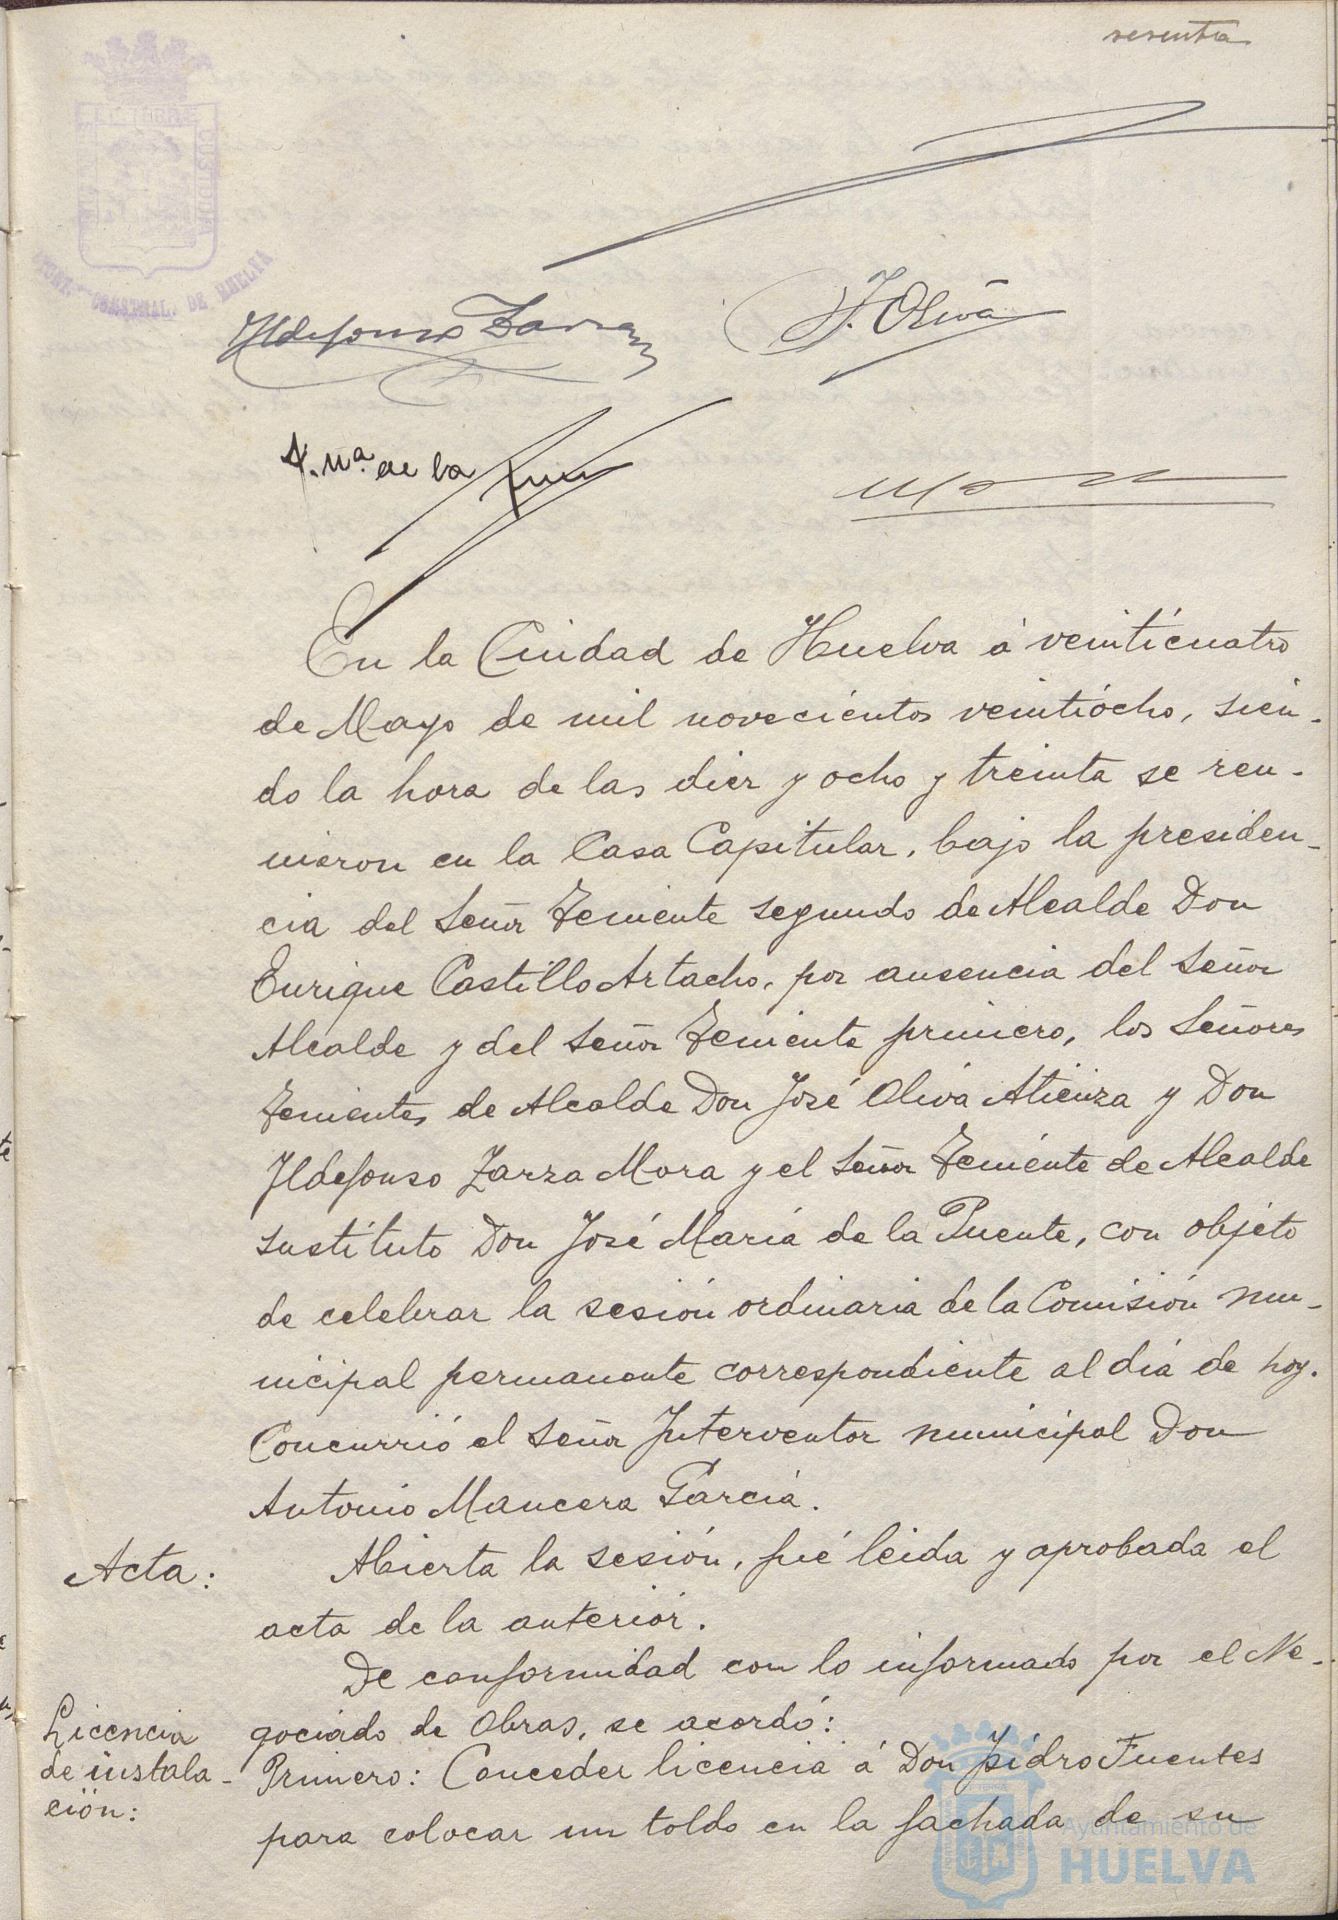 sesenta
PORTUS MARIS ET TERRAE CUSTODIA
CONSTNAL. DE HUELVA
Ildefonso Zarza
J. Oliva
J. Mª. de la Puente
En la Ciudad de Huelva á veinticuatro
de Mayo de mil novecientos veintiocho, sien-
do la hora de las diez y ocho y treinta se reu-
nieron en la Casa Capitular, bajo la presiden-
cia del Señor Teniente segundo de Alcalde Don
Enrique Castillo Artacho, por ausencia del Señor
Alcalde y del Señor Teniente primero, los Señores
Tenientes de Alcalde Don José Oliva Atienza y Don
Ildefonso Zarza Mora y el Señor Teniente de Alcalde
sustituto Don José María de la Puente, con objeto
de celebrar la sesión ordinaria de la Comisión mu-
nicipal permanente correspondiente al día de hoy.
Concurrió el Señor Interventor municipal Don
Antonio Mancera García.
Acta:
Abierta la sesión, fué leida y aprobada el
acta de la anterior.
De conformidad con lo informado por el Ne-
gociado de Obras, se acordó:
Licencia
de instala-
ción:
Primero: Conceder licencia á Don Isidro Fuentes
para colocar un toldo en la fachada de su
Ayuntamiento de
HUELVA